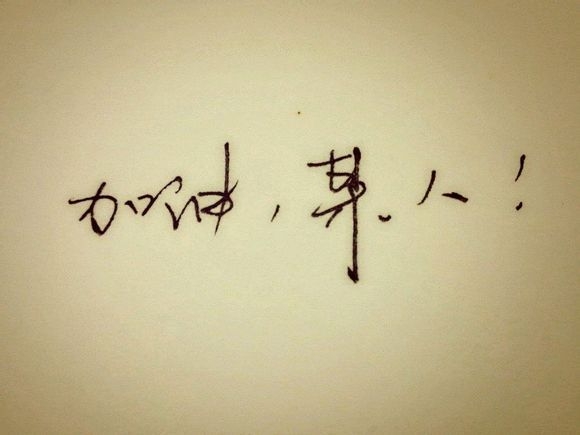 加油，某人！